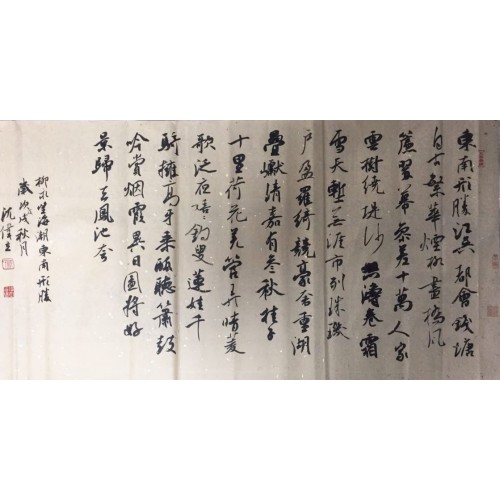 東南形勝江吳都會錢塘
自古繁華煙柳畫橋風
簾翠幕參差十萬人家
雲樹繞堤沙怒濤卷霜
雪天塹無涯市列珠璣
戶盈羅綺競豪奢重湖
疊巘清嘉有叁秋桂子
十里荷花羌管弄晴菱
歌泛夜嘻嘻釣叟蓮娃千
騎擁高牙乘醉聽簫鼓
吟賞烟霞異日圖將好
景歸去鳳池夸
柳永望海潮東南形勝
歲戊戌秋月
沈偉